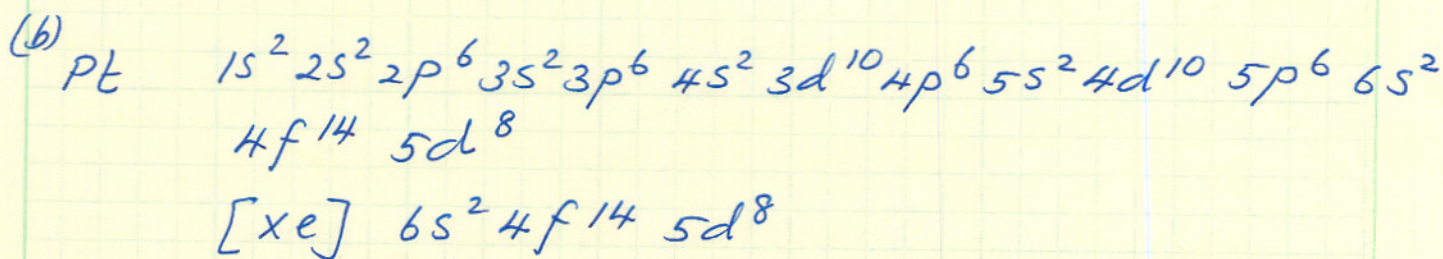 (b)
Pt 1s² 2s² 2p⁶ 3s² 3p⁶ 4s² 3d¹⁰ 4p⁶ 5s² 4d¹⁰ 5p⁶ 6s²
4f¹⁴ 5d⁸
[xe] 6s² 4f¹⁴ 5d⁸